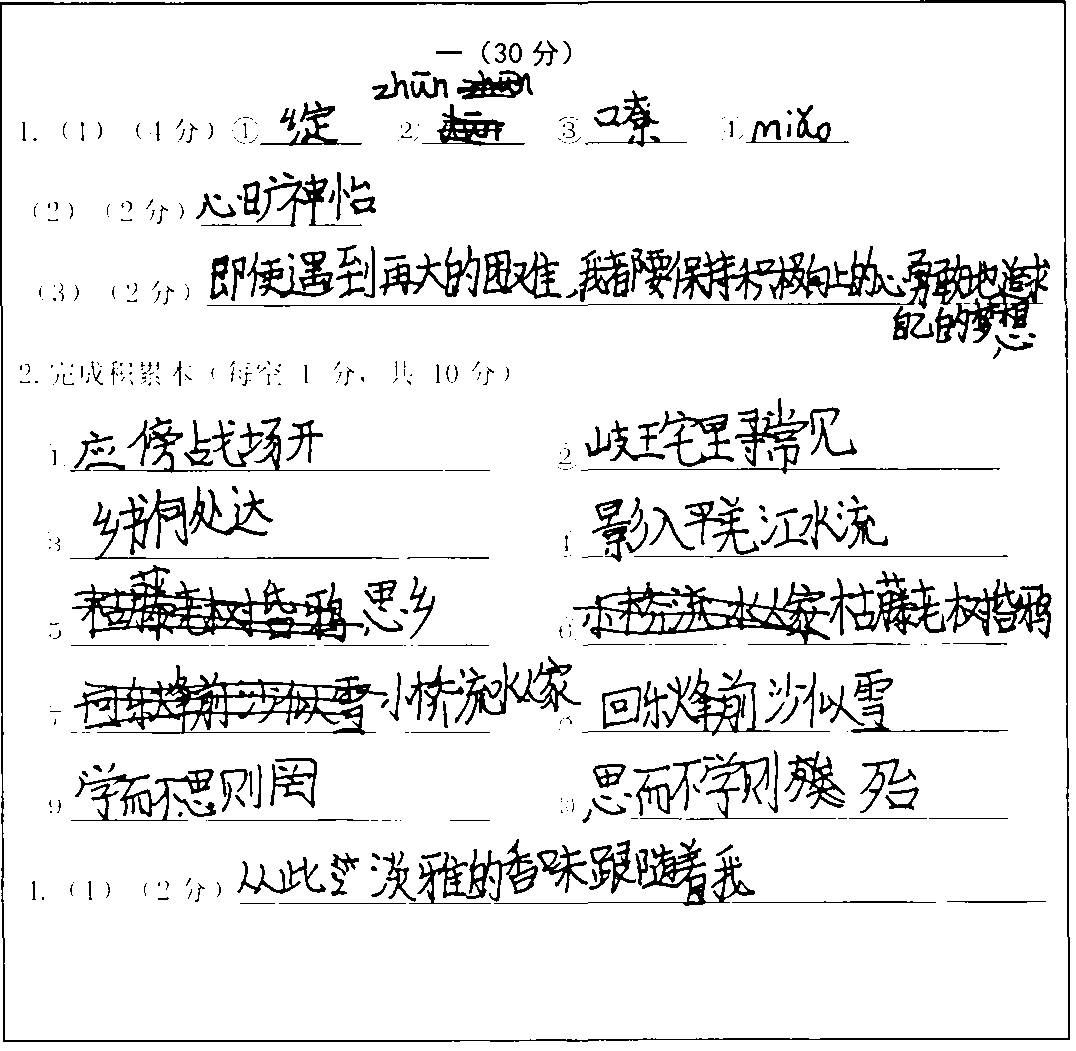 一（30分）
zhūn
1.（1）（4分）①绽 ② ③嘹 ④miǎo
（2）（2分）心旷神怡
（3）（2分）即便遇到再大的困难，我都要保持积极向上的心勇敢地追求
自己的梦想
2.完成积累本（每空1分，共10分）
1 应傍战场开 ② 岐王宅里寻常见
3 乡书何处达 4 影入平羌江水流
5 思乡 6 枯藤老树昏鸦
7 小桥流水人家 8 回乐烽前沙似雪
9 学而不思则罔 10 思而不学则 殆
4.（1）（2分）从此 淡雅的香味跟随着我